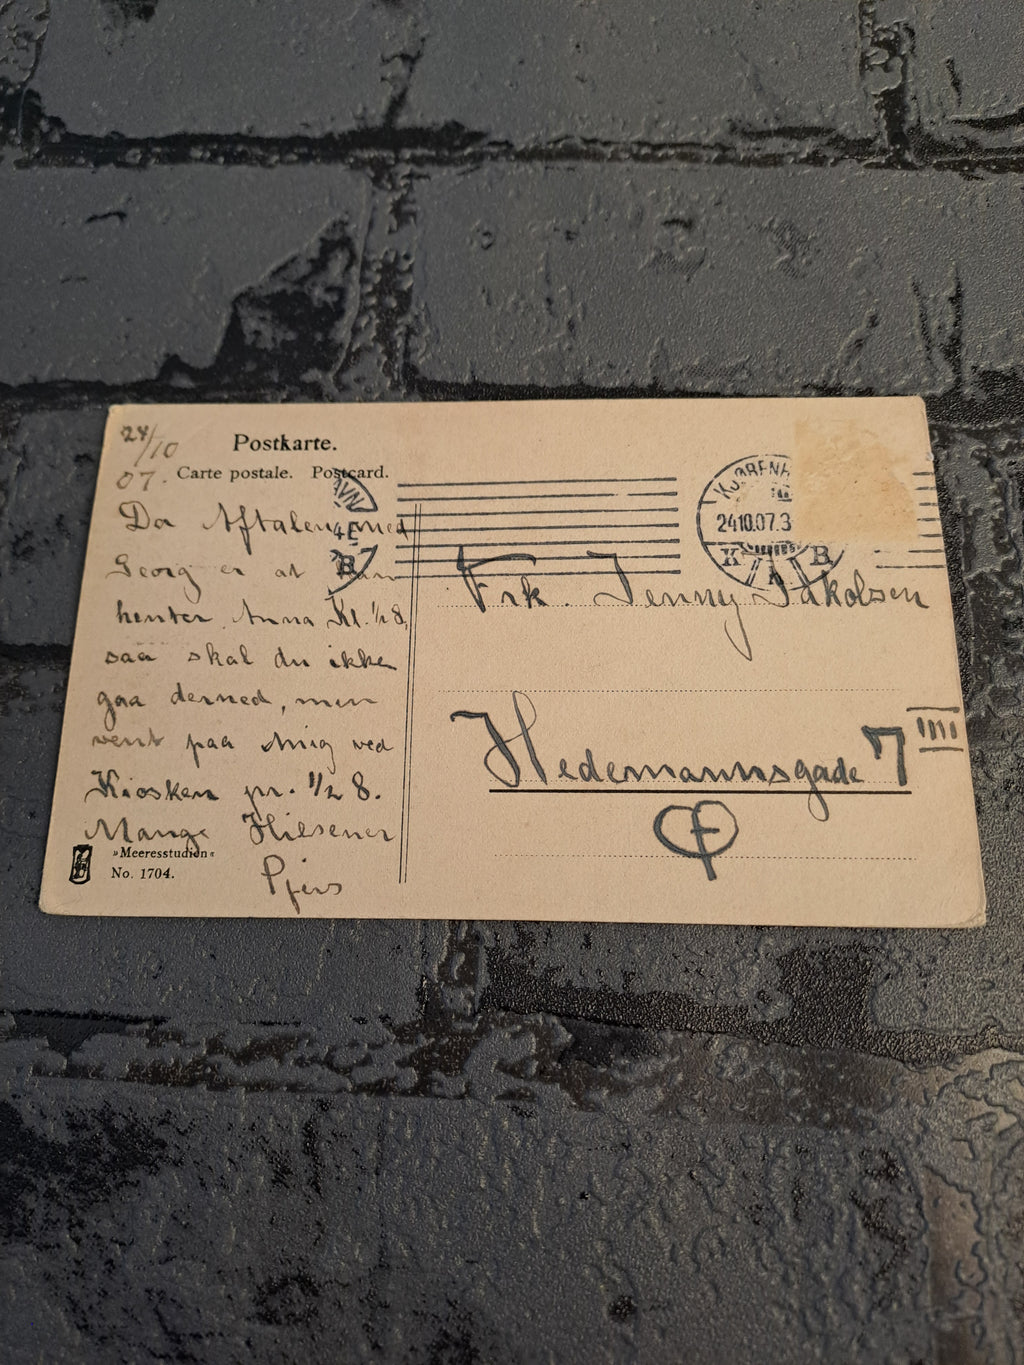 24/10
07.
Postkarte.
Carte postale. Postcard.
Da Aftalen med
Georg er at han
henter Anna Kl. ½8,
saa skal du ikke
gaa derned, men
vent paa mig ved
Kiosken pr. ½ 8.
Mange Hilsener
»Meeresstudien«
No. 1704.
KJØBENH
24.10.07.3
K B
AVN
4E
B
Frk. Jenny Jakobsen
Hedemannsgade 7 IIII